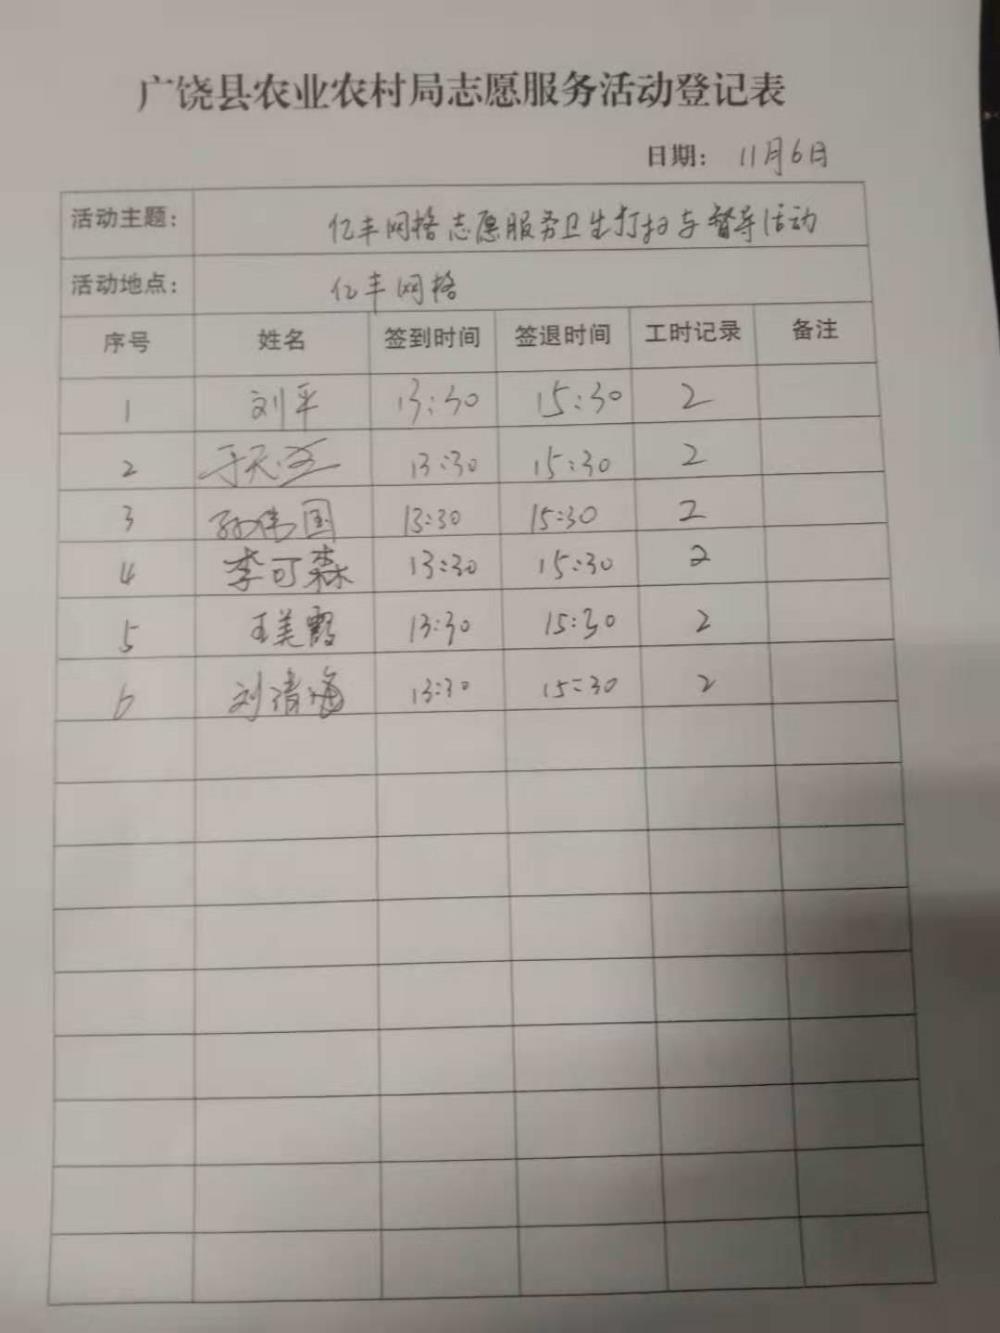 广饶县农业农村局志愿服务活动登记表
日期： 11月6日
活动主题： 亿丰网格志愿服务卫生打扫与督导活动
活动地点： 亿丰网格
序号 姓名 签到时间 签退时间 工时记录 备注
1 刘平 13:30 15:30 2
2 13:30 15:30 2
3 孙伟国 13:30 15:30 2
4 李可森 13:30 15:30 2
5 王美霞 13:30 15:30 2
6 刘清海 13:30 15:30 2